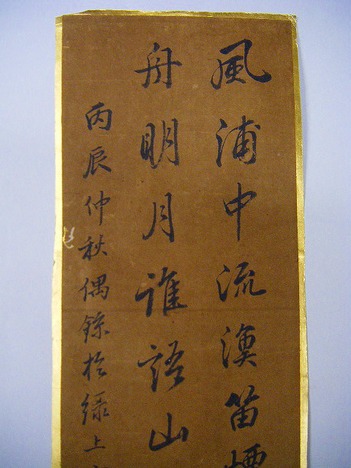 風浦中流漁笛
舟明月誰語山
丙辰仲秋偶錄於綠上